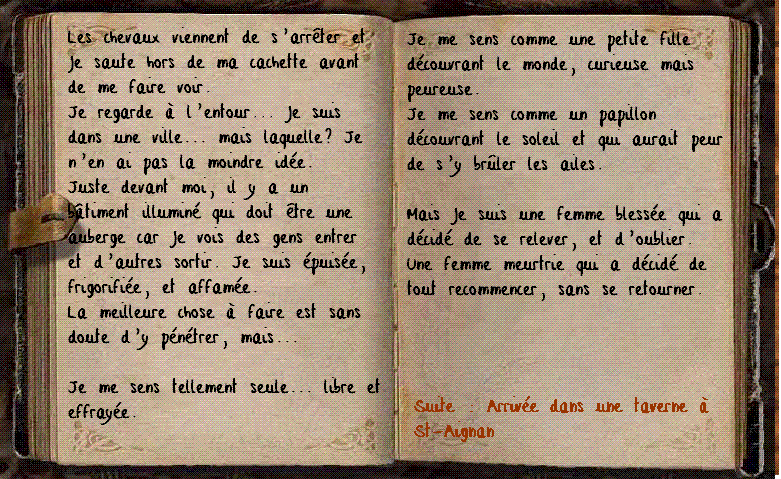 Les chevaux viennent de s'arrêter et
je saute hors de ma cachette avant
de me faire voir.
Je regarde à l'entour... Je suis
dans une ville... mais laquelle? Je
n'en ai pas la moindre idée.
Juste devant moi, il y a un
bâtiment illuminé qui doit être une
auberge car je vois des gens entrer
et d'autres sortir. Je suis épuisée,
frigorifiée, et affamée.
La meilleure chose à faire est sans
doute d'y pénétrer, mais...
Je me sens tellement seule... libre et
effrayée.
Je me sens comme une petite fille
découvrant le monde, curieuse mais
peureuse.
Je me sens comme un papillon
découvrant le soleil et qui aurait peur
de s'y brûler les ailes.
Mais je suis une femme blessée qui a
décidé de se relever, et d'oublier.
Une femme meurtrie qui a décidé de
tout recommencer, sans se retourner.
Suite : Arrivée dans une taverne à
St-Aignan